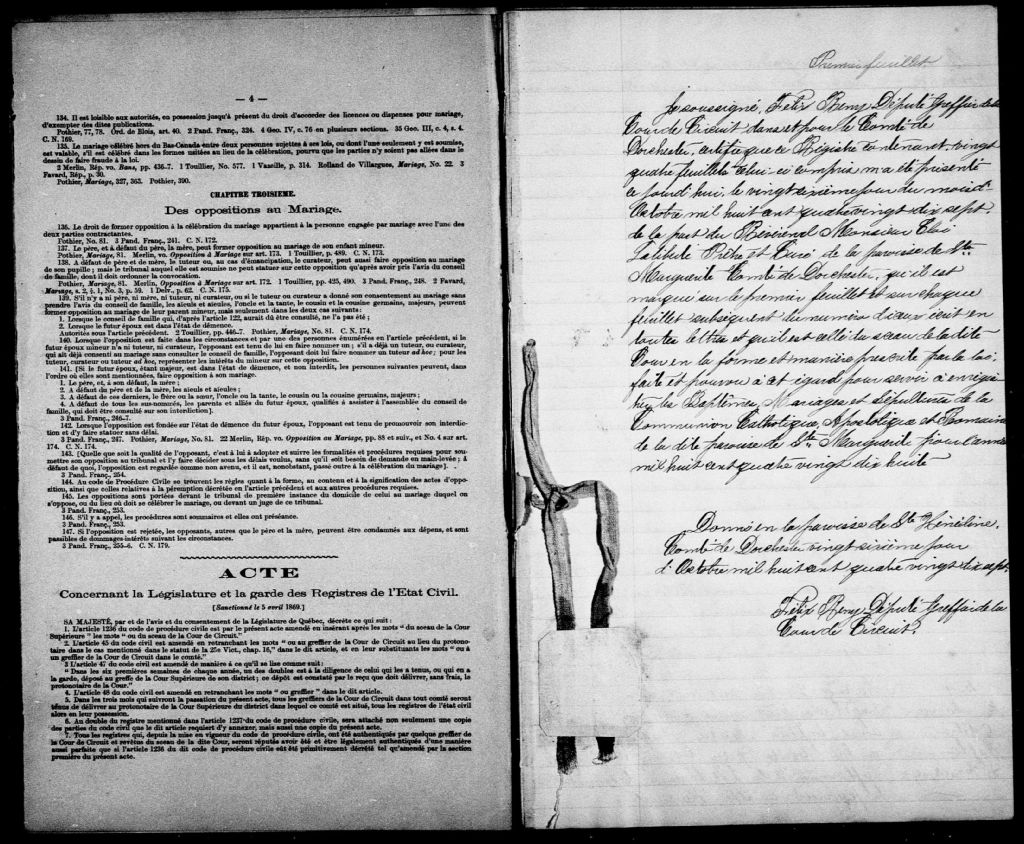 — 4 —
134. Il est loisible aux autorités, en possession jusqu'à présent du droit d'accorder des licences ou dispenses pour mariage,
d'exempter des dites publications.
Pothier, 77, 78. Ord. de Blois, art. 40. 2 Pand. Franç., 324. 4 Geo. IV, c. 76 en plusieurs sections. 35 Geo. III, c. 4, s. 4.
C. N. 169.
135. Le mariage célébré hors du Bas-Canada entre deux personnes sujettes à ses lois, ou dont l'une seulement y est soumise,
est valable, s'il est célébré dans les formes usitées au lieu de la célébration, pourvu que les parties n'y soient pas allées dans le
dessin de faire fraude à la loi.
2 Merlin, Rép. vo. Bans, pp. 436-7. 1 Touillier, No. 577. 1 Vazeille, p. 314. Rolland de Villargues, Mariage, No. 22. 3
Favard, Rép., p. 30.
Pothier, Mariage, 327, 363. Pothier, 390.
CHAPITRE TROISIEME.
Des oppositions au Mariage.
136. Le droit de former opposition à la célébration du mariage appartient à la personne engagée par mariage avec l'une des
deux parties contractantes.
Pothier, No. 81. 3 Pand. Franç., 241. C. N. 172.
137. Le père, et à défaut du père, la mère, peut former opposition au mariage de son enfant mineur.
Pothier, Mariage, 81. Merlin, vo. Opposition à Mariage sur art. 173. 1 Touillier, p. 489. C. N. 173.
138. A défaut de père et de mère, le tuteur ou, au cas d'émancipation, le curateur, peut aussi faire opposition au mariage
de son pupille; mais le tribunal auquel elle est soumise ne peut statuer sur cette opposition qu'après avoir pris l'avis du conseil
de famille, dont il doit ordonner la convocation.
Pothier, Mariage, 81. Merlin, Opposition à Mariage sur art. 172. 1 Touillier, pp. 425, 490. 3 Pand. Franç., 248. 2 Favard,
Mariage, s. 2, §. 1, No. 3, p. 59. 1 Delv., p. 62. C. N. 175.
139. S'il n'y a ni père, ni mère, ni tuteur, ni curateur, ou si le tuteur ou curateur a donné son consentement au mariage sans
prendre l'avis du conseil de famille, les aïeuls et aïeules, l'oncle et la tante, le cousin et la cousine germains, majeurs, peuvent
former opposition au mariage de leur parent mineur, mais seulement dans les deux cas suivants:
1. Lorsque le conseil de famille qui, d'après l'article 122, aurait dû être consulté, ne l'a pas été;
2. Lorsque le futur époux est dans l'état de démence.
Autorités sous l'article précédent. 2 Touillier, pp. 446-7. Pothier, Mariage, No. 81. C. N. 174.
140. Lorsque l'opposition est faite dans les circonstances et par une des personnes énumérées en l'article précédent, si le
futur époux mineur n'a ni tuteur, ni curateur, l'opposant est tenu de lui en faire nommer un; s'il a déjà un tuteur, ou curateur,
qui ait déjà consenti au mariage sans consulter le conseil de famille, l'opposant doit lui faire nommer un tuteur ad hoc; pour les
tuteur, curateur ou tuteur ad hoc, représenter les intérêts du mineur sur cette opposition.
141. [Si le futur époux, étant majeur, est dans l'état de démence, et non interdit, les personnes suivantes peuvent, dans
l'ordre où elles sont mentionnées, faire opposition à son mariage.
1. Le père, et, à son défaut, la mère;
2. A défaut du père et de la mère, les aïeuls et aïeules;
3. A défaut de ces derniers, le frère ou la sœur, l'oncle ou la tante, le cousin ou la cousine germains, majeurs;
4. A défaut de tous les sus-nommés, les parents et alliés du futur époux, qualifiés à assister à l'assemblée du conseil de
famille, qui doit être consulté sur son interdiction].
3 Pand. Franç., 246-7.
142. Lorsque l'opposition est fondée sur l'état de démence du futur époux, l'opposant est tenu de promouvoir son interdic-
tion et d'y faire statuer sans délai.
3 Pand. Franç., 247. Pothier, Mariage, No. 81. 22 Merlin, Rép. vo. Opposition au Mariage, pp. 88 et suiv., et No. 4 sur art.
174. C. N. 174.
143. [Quelle que soit la qualité de l'opposant, c'est à lui à adopter et suivre les formalités et procédures requises pour sou-
mettre son opposition au tribunal et l'y faire décider sous les délais voulus, sans qu'il soit besoin de demande en main-levée; à
défaut de quoi, l'opposition est regardée comme non avenu, et il est, nonobstant, passé outre à la célébration du mariage].
3 Pand. Franç., 254.
144. Au code de Procédure Civile se trouvent les règles quant à la forme, au contenu et à la signification des actes d'oppo-
sition, ainsi que celles relatives à la péremption décrétée en l'article précédent et aux autres procédures requises.
145. Les oppositions sont portées devant le tribunal de première instance du domicile de celui au mariage duquel on
s'oppose, ou du lieu où doit se célébrer le mariage, ou devant un juge de ce tribunal.
3 Pand. Franç., 253.
146. S'il y a appel, les procédures sont sommaires et elles ont préséance.
3 Pand. Franç., 253.
147. Si l'opposition est rejetée, les opposants, autres que le père et la mère, peuvent être condamnés aux dépens, et sont
passibles de dommages-intérêts suivant les circonstances.
3 Pand. Franç., 255-6. C. N. 179.
ACTE
Concernant la Législature et la garde des Registres de l'Etat Civil.
[Sanctionné le 5 avril 1869.]
SA MAJESTÉ, par et de l'avis et du consentement de la Législature de Québec, décrète ce qui suit:
1. L'article 1236 du code de procédure civile est par le présent acte amendé en insérant après les mots "du sceau de la Cour
Supérieure" les mots "ou du sceau de la Cour de Circuit."
2. L'article 45 du code civil est amendé en retranchant les mots "ou au greffier de la Cour de Circuit au lieu du protono-
taire dans le cas mentionné dans le statut de la 25e Vict., chap. 16," dans le dit article, et en leur substituants les mots "ou à
un greffier de la Cour de Circuit dans le comté."
3 L'article 47 du code civil est amendé de manière à ce qu'il se lise comme suit:
"Dans les six premières semaines de chaque année, un des doubles est à la diligence de celui qui les a tenus, ou qui en a
la garde, déposé au greffe de la Cour Supérieure de son district; ce dépôt est constaté par le reçu que doit délivrer, sans frais, le
protonotaire de la Cour."
4. L'article 48 du code civil est amendé en retranchant les mots "ou greffier" dans le dit article.
5. Dans les trois mois qui suivront la passation du présent acte, tous les greffiers de la Cour de Circuit dans tout comté seront
tenus de délivrer au protonotaire de la Cour Supérieure du district dans lequel ce comté est situé, tous les registres de l'état civil
alors en leur possession.
6. Au double du registre mentionné dans l'article 1237 du code de procédure civile, sera attaché non seulement une copie
des parties du code civil que le dit article requiert d'y annexer, mais aussi une copie du présent acte.
7. Tous les registres qui, depuis la mise en vigueur du code de procédure civile, ont été authentiqués par quelque greffier de
la Cour de Circuit et revêtus du sceau de la dite Cour, seront réputés avoir été et être légalement authentiqués d'une manière
aussi parfaite que si l'article 1236 du dit code de procédure civile eût été primitivement décrété tel qu'amendé par la section
première du présent acte.
Premier feuillet.
Je soussigné, Felix Remy, Député Greffier de la
Cour de Circuit dans et pour le Comté de
Dorchester, certifie que ce Régistre contenant vingt
quatre feuillets celui-ci compris m'a été présenté
ce jourd'hui, le vingt sixième jour du mois d'
Octobre mil huit cent quatre vingt dix sept.
de la part du Révérend Monsieur Eloi
Laliberté Prêtre et Curé de la paroisse de Ste
Marguerite Comté de Dorchester, qu'il est
marqué sur le premier feuillet et sur chaque
feuillet subséquent du numéro d'iceux écrit en
toutes lettres et qu'il est cellé du sceau de la dite
Cour en la forme et manière prescrite par la loi,
faite et pourvu à cet égard pour servir à enrégis
trer les Baptêmes Mariages et Sépultures de la
Communion Catholique, Apostolique et Romaine
de la dite paroisse de Ste Marguerite pour l'année
mil huit cent quatre vingt dix huite
Donné en la paroisse de Ste Hénédine,
Comté de Dorchester vingt sixième jour
d'Octobre mil huit cent quatre vingt dix sept.
Felix Remy, Député Greffier de la
Cour de Circuit.